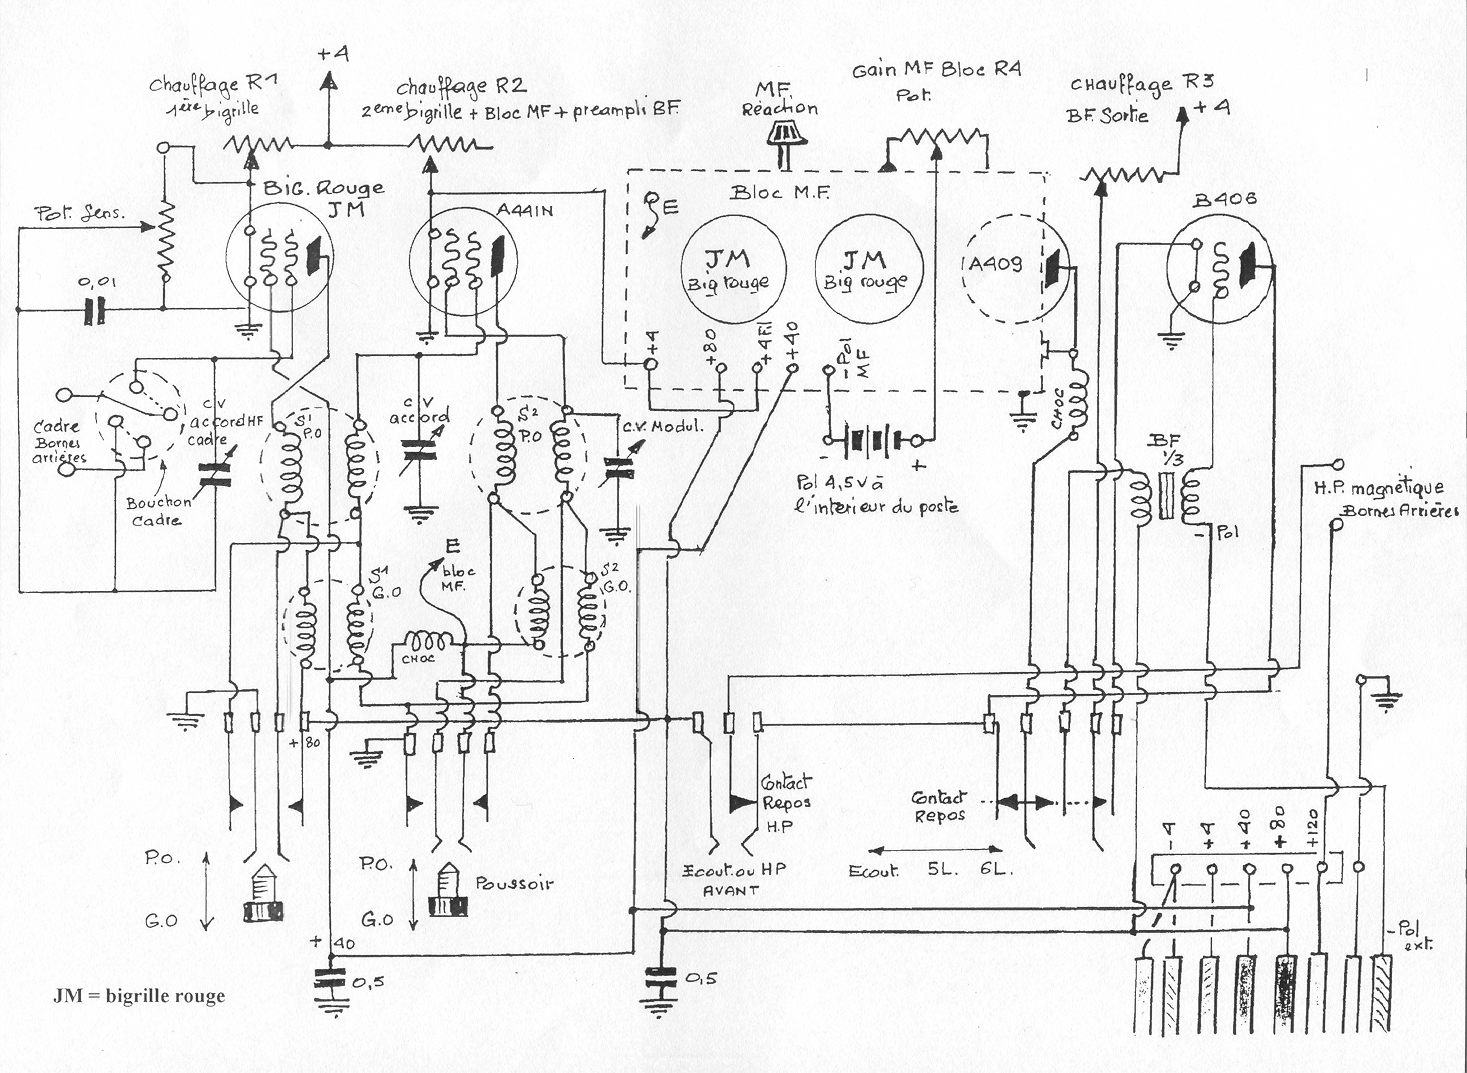 +4
Chauffage R1
1ère bigrille
Chauffage R2
2eme bigrille + Bloc MF + preampli BF.
MF
Réaction
Gain MF Bloc R4
Pot.
Chauffage R3
BF. Sortie
+4
Pot. Sens.
0,01
Big. Rouge
JM
A441N
E
Bloc M.F.
JM
Big rouge
JM
Big rouge
A409
B406
+4
+80
+4Fil
+40
-Pol
MF
CHOC
Cadre
Bornes
arrières
CV
accord HF
cadre
Bouchon
Cadre
S1
P.O
CV
accord
S2
P.O
C.V. Modul.
-
+
Pol 4,5V à
l'interieur du poste
BF
1/3
-Pol
H.P. magnétique
Bornes Arrières
S1
G.O
E
bloc
MF.
CHOC
S2
G.O.
+80
Contact
Repos
H.P
Contact
Repos
Ecout. ou HP
AVANT
Ecout. 5L. 6L.
-4
+4
+40
+80
+120
P.O.
G.O
P.O.
G.O
Poussoir
+40
0,5
0,5
-Pol
ext.
JM = bigrille rouge